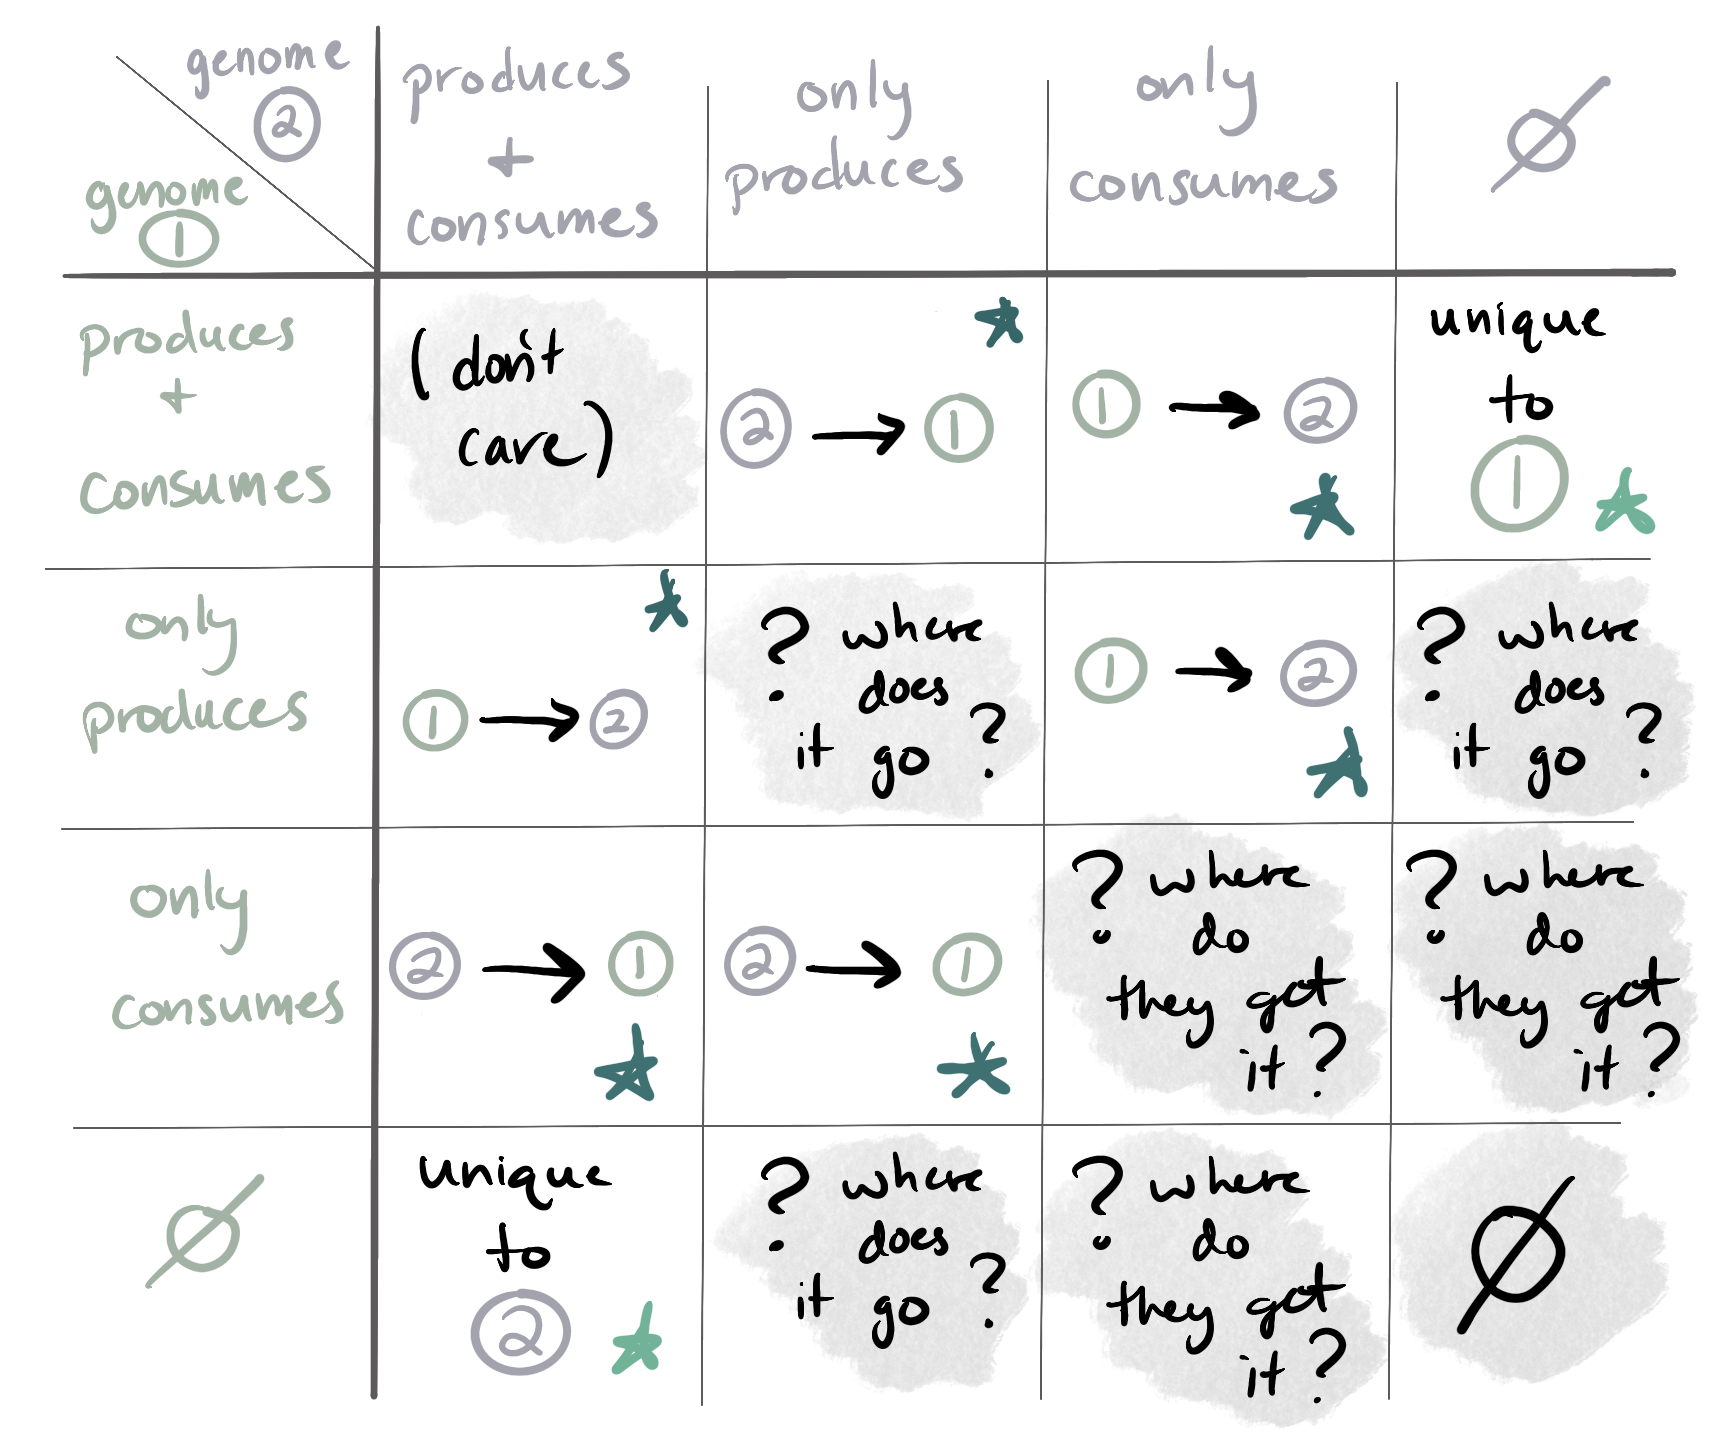 genome
②
genome
①
produces
+
consumes
only
produces
only
consumes
∅
produces
+
consumes
(don't
care)
② → ①
① → ②
unique
to
①
only
produces
① → ②
? where
does
it go ?
① → ②
? where
does
it go ?
only
consumes
② → ①
② → ①
? where
do
they got
it ?
? where
do
they got
it ?
∅
unique
to
②
? where
does
it go ?
? where
do
they got
it ?
∅